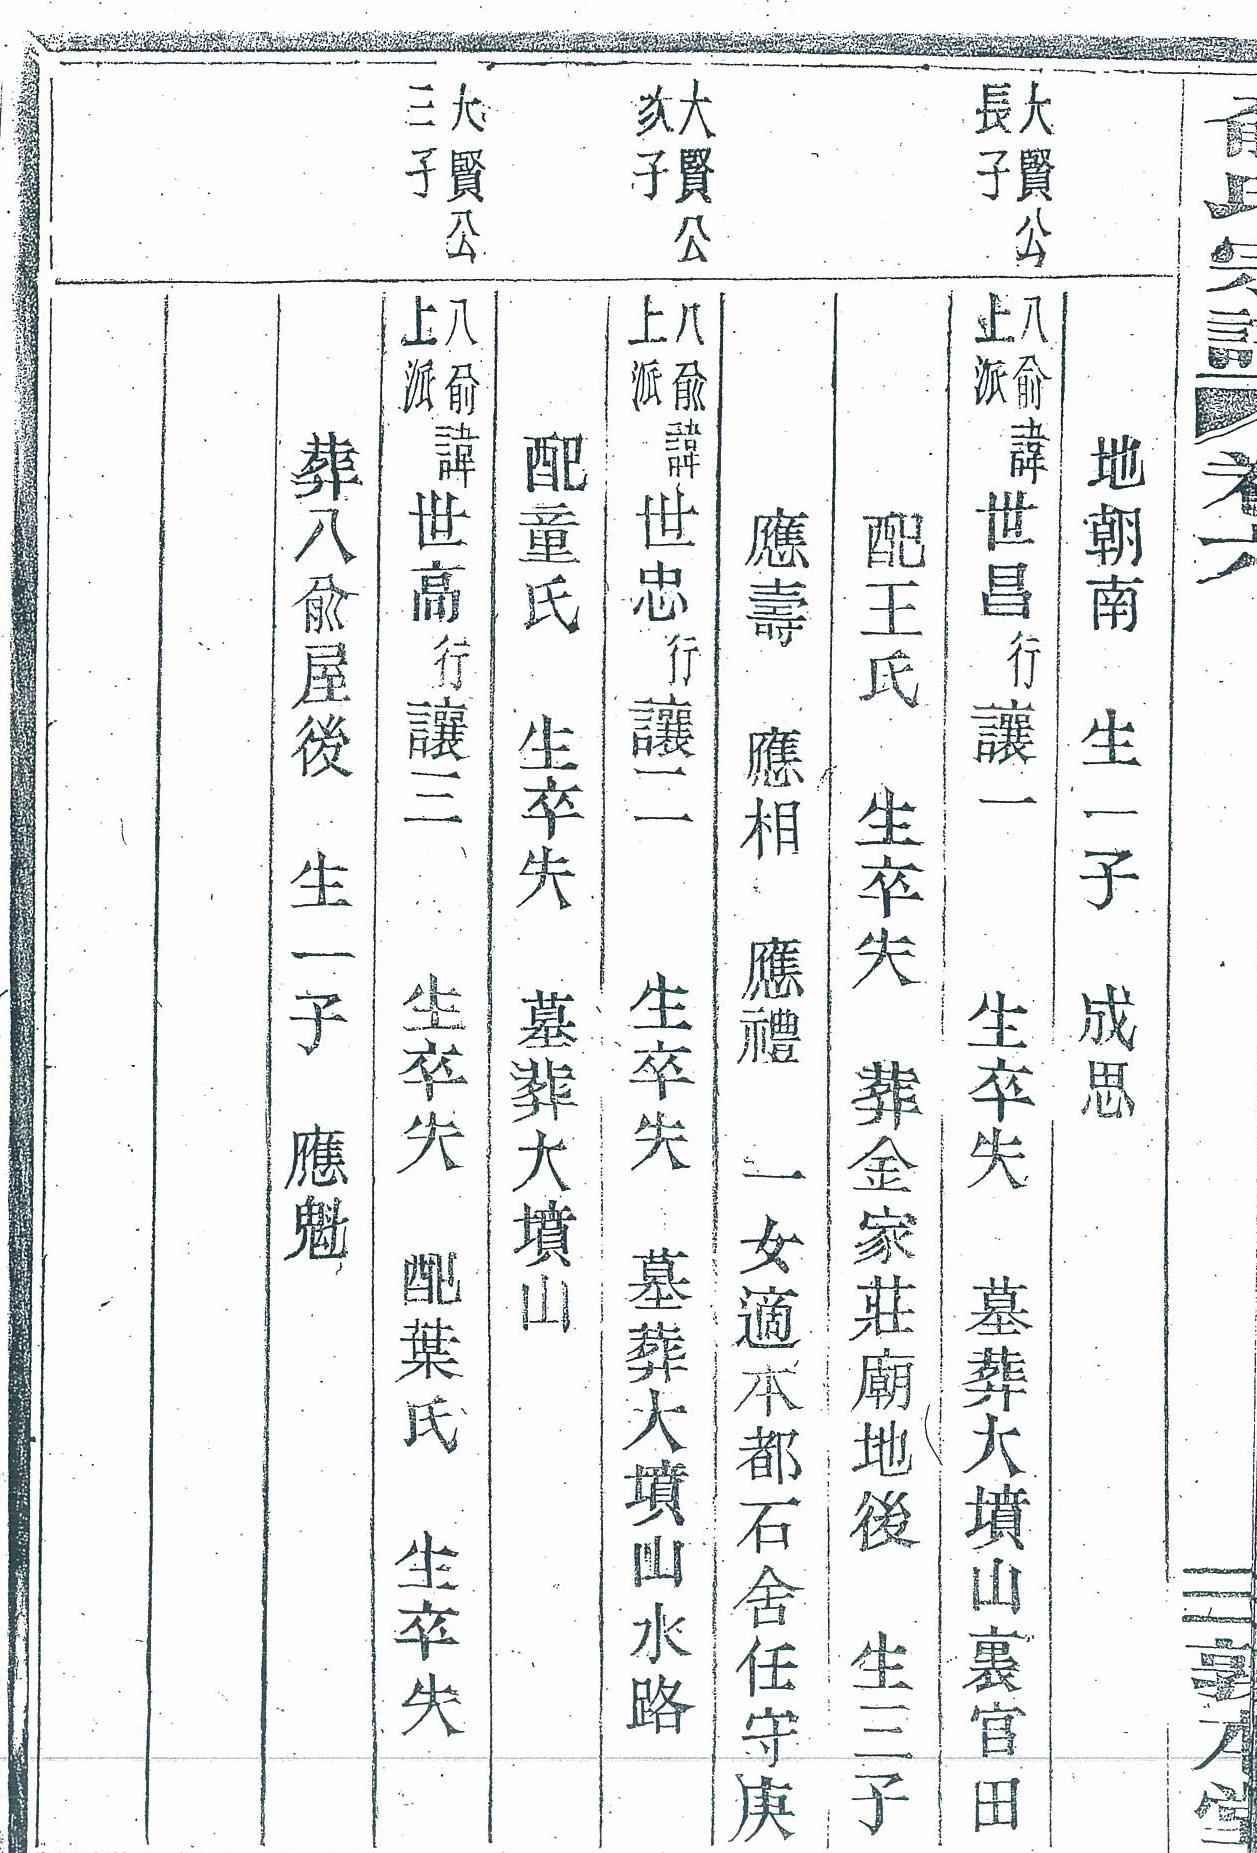 俞氏宗譜 卷六 三 敦本堂
地朝南 生一子 成思
大賢公
長子
八俞
上派
諱世昌行讓一 生卒失 墓葬大墳山裏官田
配王氏 生卒失 葬金家莊廟地後 生三子
應壽 應相 應禮 一女適本都石舍任守庚
大賢公
次子
八俞
上派
諱世忠行讓二 生卒失 墓葬大墳山水路
配童氏 生卒失 墓葬大墳山
大賢公
三子
八俞
上派
諱世高行讓三 生卒失 配葉氏 生卒失
葬八俞屋後 生一子 應魁